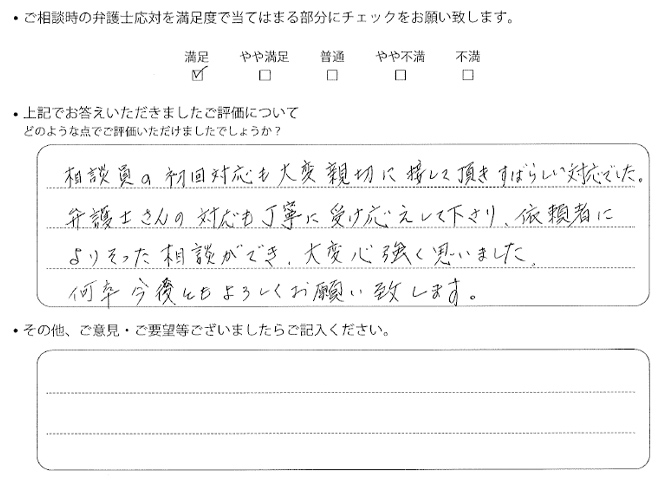 ・ご相談時の弁護士応対を満足度で当てはまる部分にチェックをお願い致します。
満足 やや満足 普通 やや不満 不満
☑ ☐ ☐ ☐ ☐
・上記でお答えいただきましたご評価について
どのような点でご評価いただけましたでしょうか？
相談員の初回対応も大変親切に接して頂きすばらしい対応でした。
弁護士さんの対応も丁寧に受け応えして下さり、依頼者に
よりそった相談ができ、大変心強く思いました。
何卒今後ともよろしくお願い致します。
・その他、ご意見・ご要望等ございましたらご記入ください。